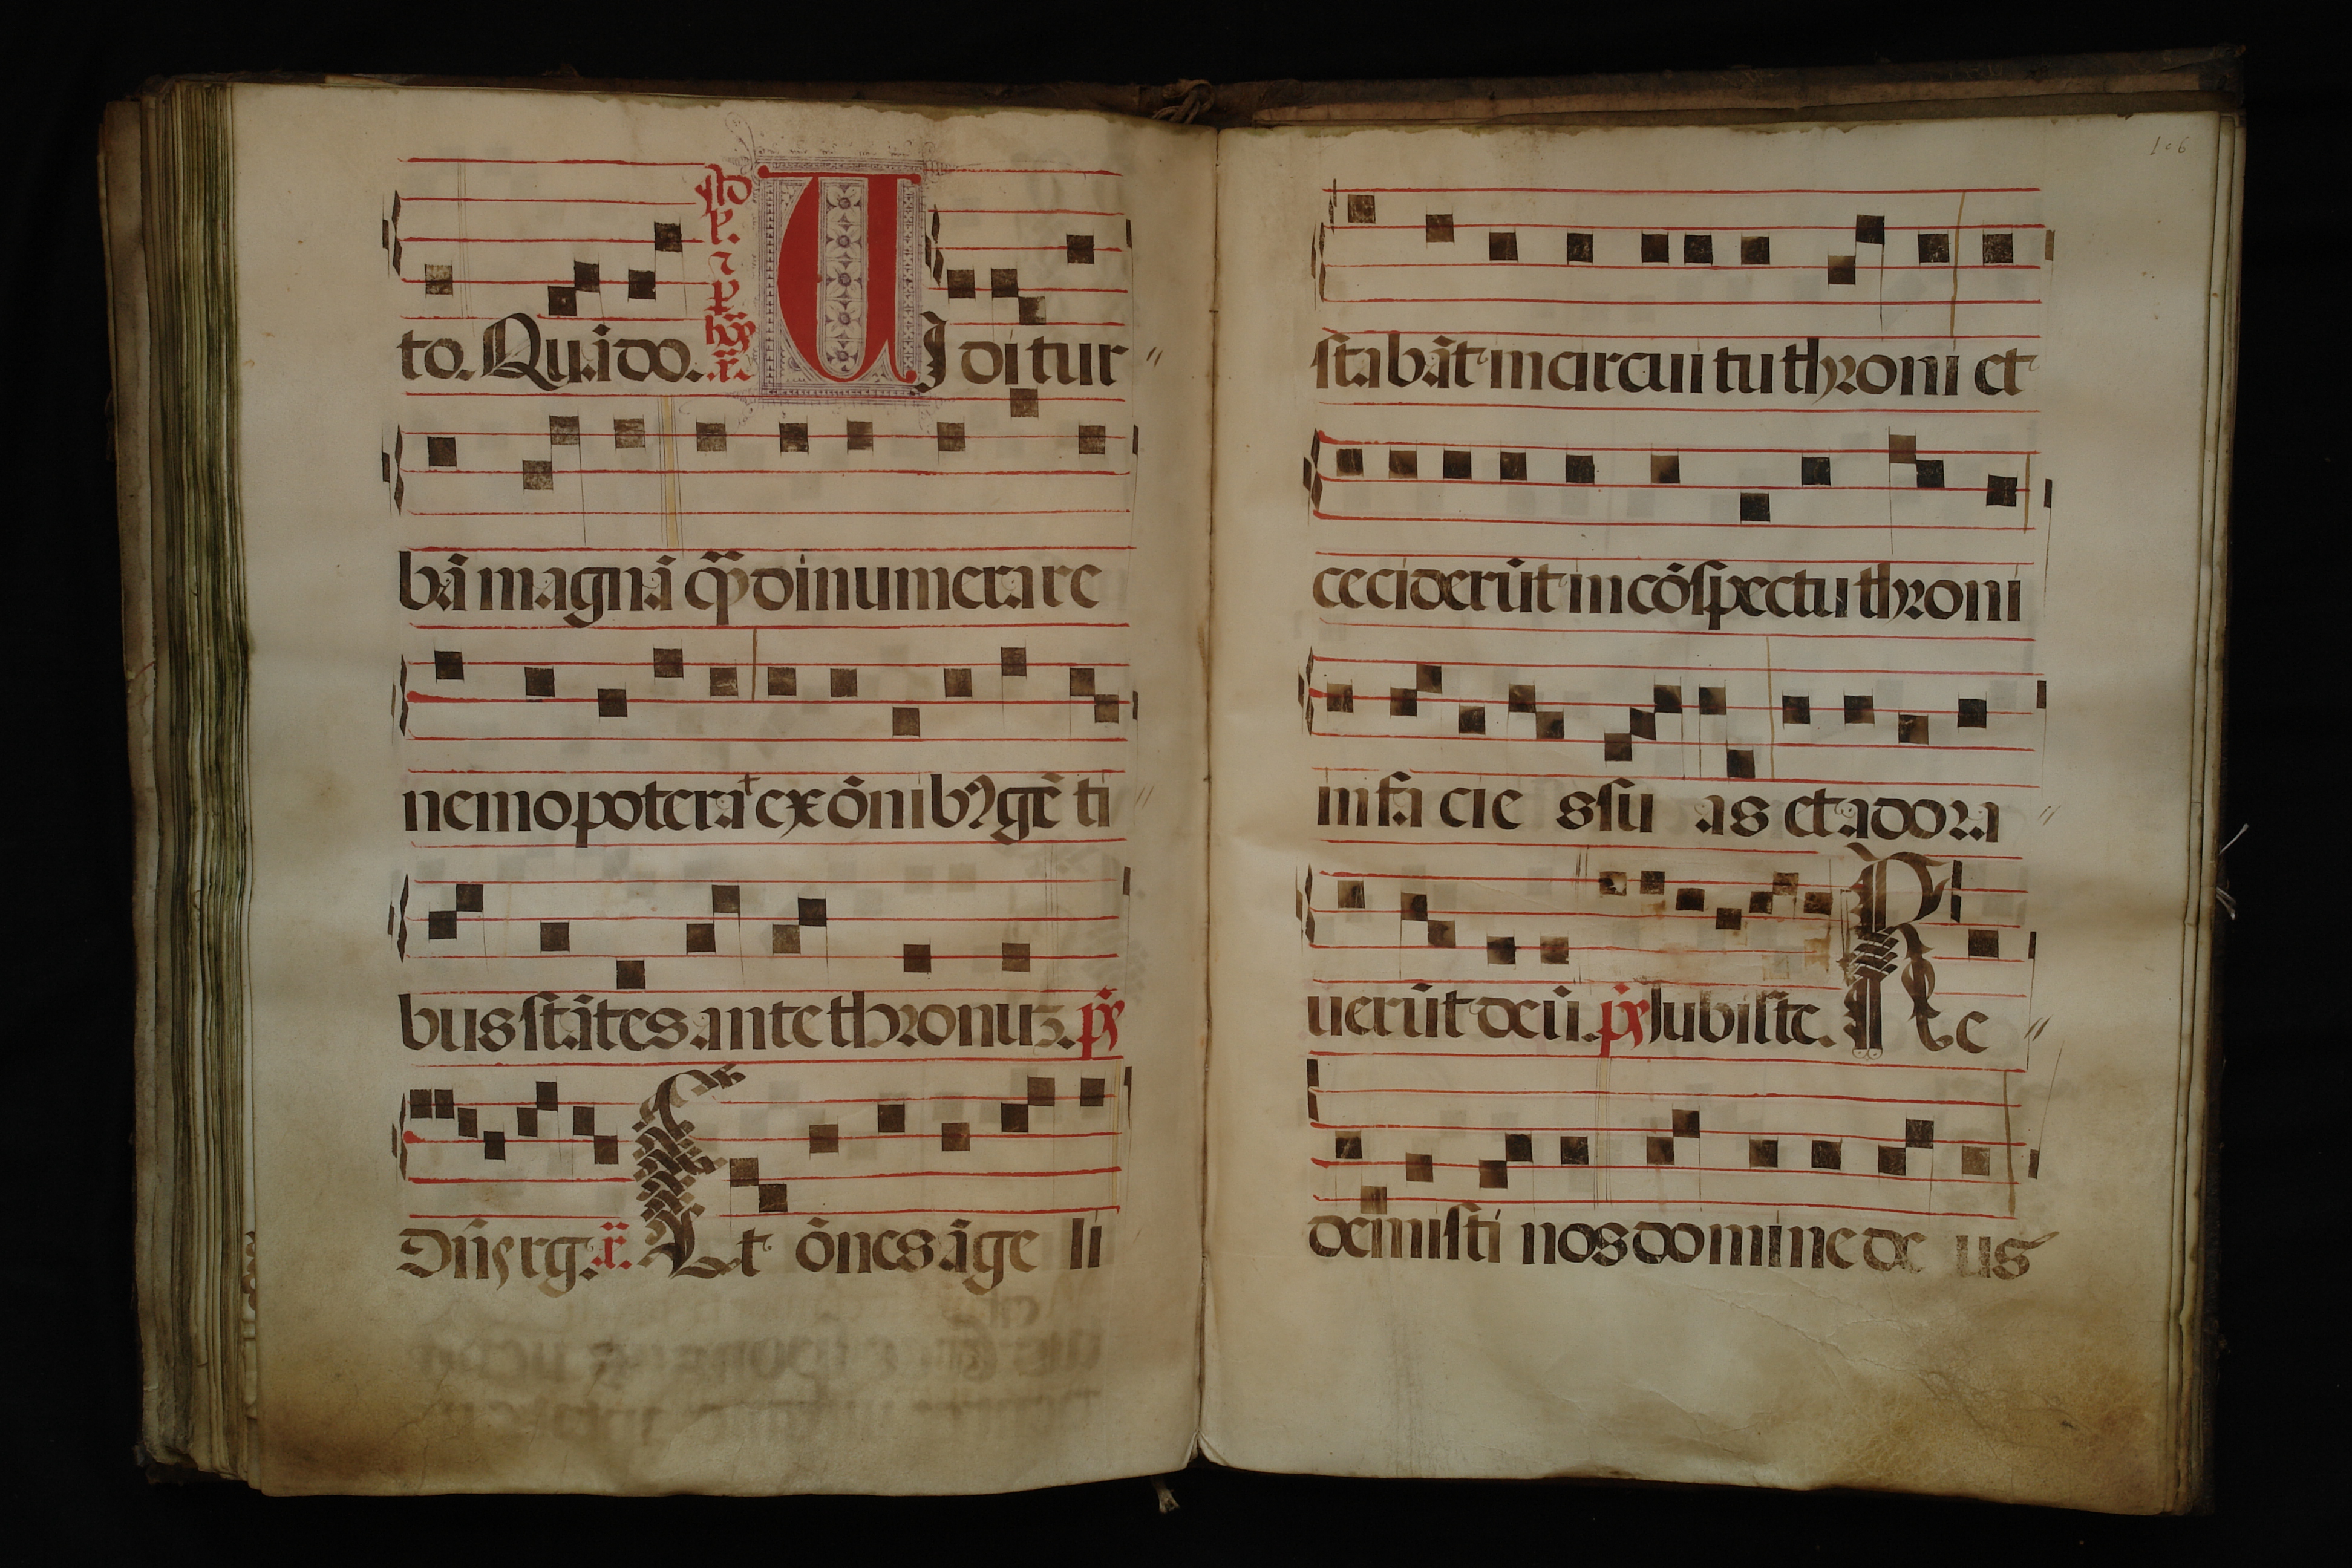 to. Qui do. VIdi tur
bā magnā q̄ꝫ dinumerare
nemo poterat ex ōnibꝰ gēti
bus stātes ante thronuꝫ. pͣs
Dn̄s rg. a͞. Et ōnes āgeli
106
stabāt in circuitu throni et
ceciderūt in cōspectu throni
in facies suas et adora
uerūt deū. pͣs Iubilate. Re
demisti nos domine deus